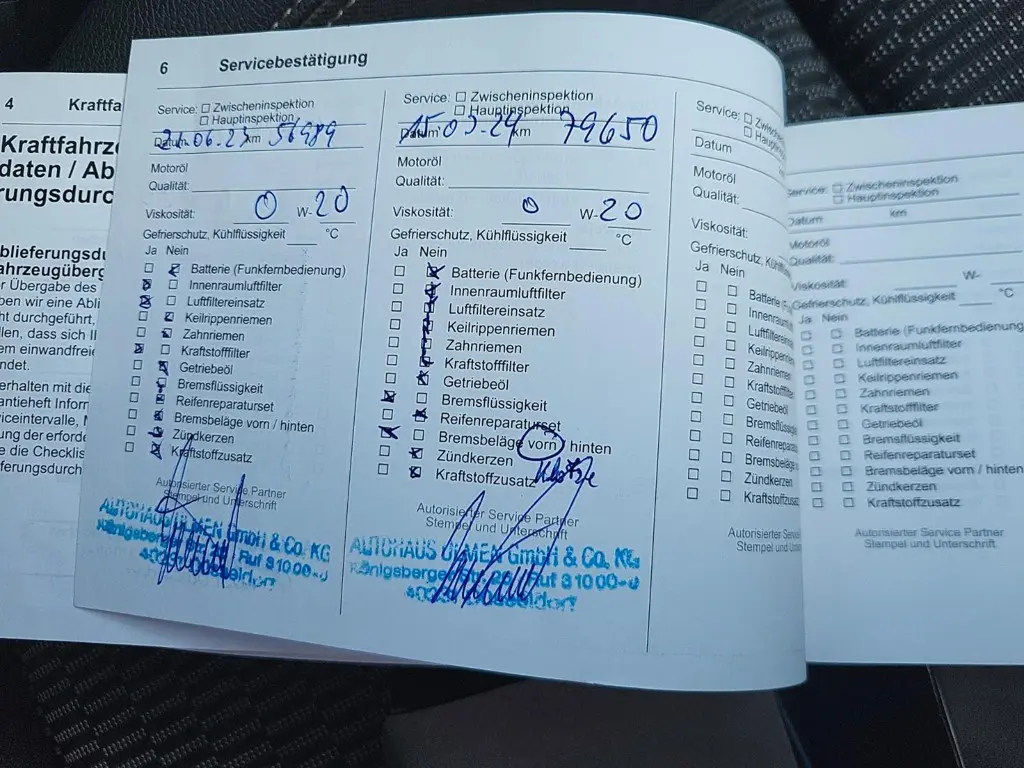 4 Kraftfa
Kraftfahrze
daten / Ab
rungsdurc
blieferungsdu
ahrzeugüberg
r Übergabe des
ben wir eine Abli
ht durchgeführt,
llen, dass sich II
em einwandfreie
ndet.
erhalten mit die
antieheft Inform
viceintervalle, M
ung der erforde
e die Checklis
ferungsdurch
6 Servicebestätigung
Service: Zwischeninspektion
Hauptinspektion
Datum .06.23 km 56989
Motoröl
Qualität:
Viskosität: 0 W-20
Gefrierschutz, Kühlflüssigkeit °C
Ja Nein
Batterie (Funkfernbedienung)
Innenraumluftfilter
Luftfiltereinsatz
Keilrippenriemen
Zahnriemen
Kraftstofffilter
Getriebeöl
Bremsflüssigkeit
Reifenreparaturset
Bremsbeläge vorn / hinten
Zündkerzen
Kraftstoffzusatz
Autorisierter Service Partner
Stempel und Unterschrift
AUTOHAUS GmbH & Co. KG
Königsberger Ruf 8 10 00-0
Düsseldorf
Service: Zwischeninspektion
Hauptinspektion
Datum 15.03.24 km 79650
Motoröl
Qualität:
Viskosität: 0 W-20
Gefrierschutz, Kühlflüssigkeit °C
Ja Nein
Batterie (Funkfernbedienung)
Innenraumluftfilter
Luftfiltereinsatz
Keilrippenriemen
Zahnriemen
Kraftstofffilter
Getriebeöl
Bremsflüssigkeit
Reifenreparaturset
Bremsbeläge vorn / hinten
Klötze
Zündkerzen
Kraftstoffzusatz
Autorisierter Service Partner
Stempel und Unterschrift
AUTOHAUS GmbH & Co. KG
Königsberger Str. Ruf 8 10 00-0
Düsseldorf
Service: Zwische
Hauptin
Datum
Motoröl
Qualität:
Viskosität:
Gefrierschutz, Kühlfl
Ja Nein
Batterie (F
Innenraum
Luftfilterein
Keilrippenr
Zahnriemen
Kraftstofffilt
Getriebeöl
Bremsflüssig
Reifenrepara
Bremsbeläge
Zündkerzen
Kraftstoffzusa
Autorisierter Servi
Stempel und Un
Service: Zwischeninspektion
Hauptinspektion
Datum km
Motoröl
Qualität:
Viskosität: W-
Gefrierschutz, Kühlflüssigkeit °C
Ja Nein
Batterie (Funkfernbedienung
Innenraumluftfilter
Luftfiltereinsatz
Keilrippenriemen
Zahnriemen
Kraftstofffilter
Getriebeöl
Bremsflüssigkeit
Reifenreparaturset
Bremsbeläge vorn / hinten
Zündkerzen
Kraftstoffzusatz
Autorisierter Service Partner
Stempel und Unterschrift